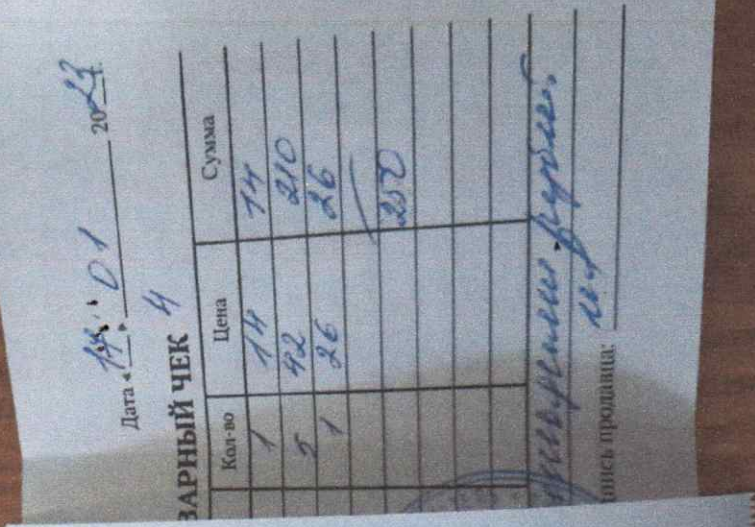 Дата « 14 » 01 2023 г.
ЗАРНЫЙ ЧЕК 4
Кол-во Цена Сумма
1 14 14
5 42 210
1 26 26
250
рублей
пись продавца: